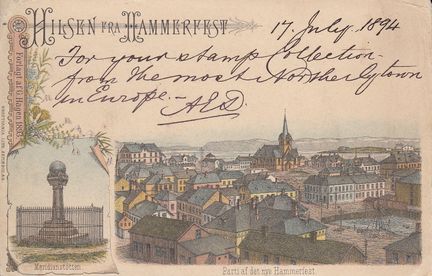 HILSEN FRA HAMMERFEST
17. July. 1894
For your stamp Collection -
from the most Northerly town
in Europe. - AED.
Forlagt af G. Hagen 1893.
Meridianstötten
Parti af det nye Hammerfest